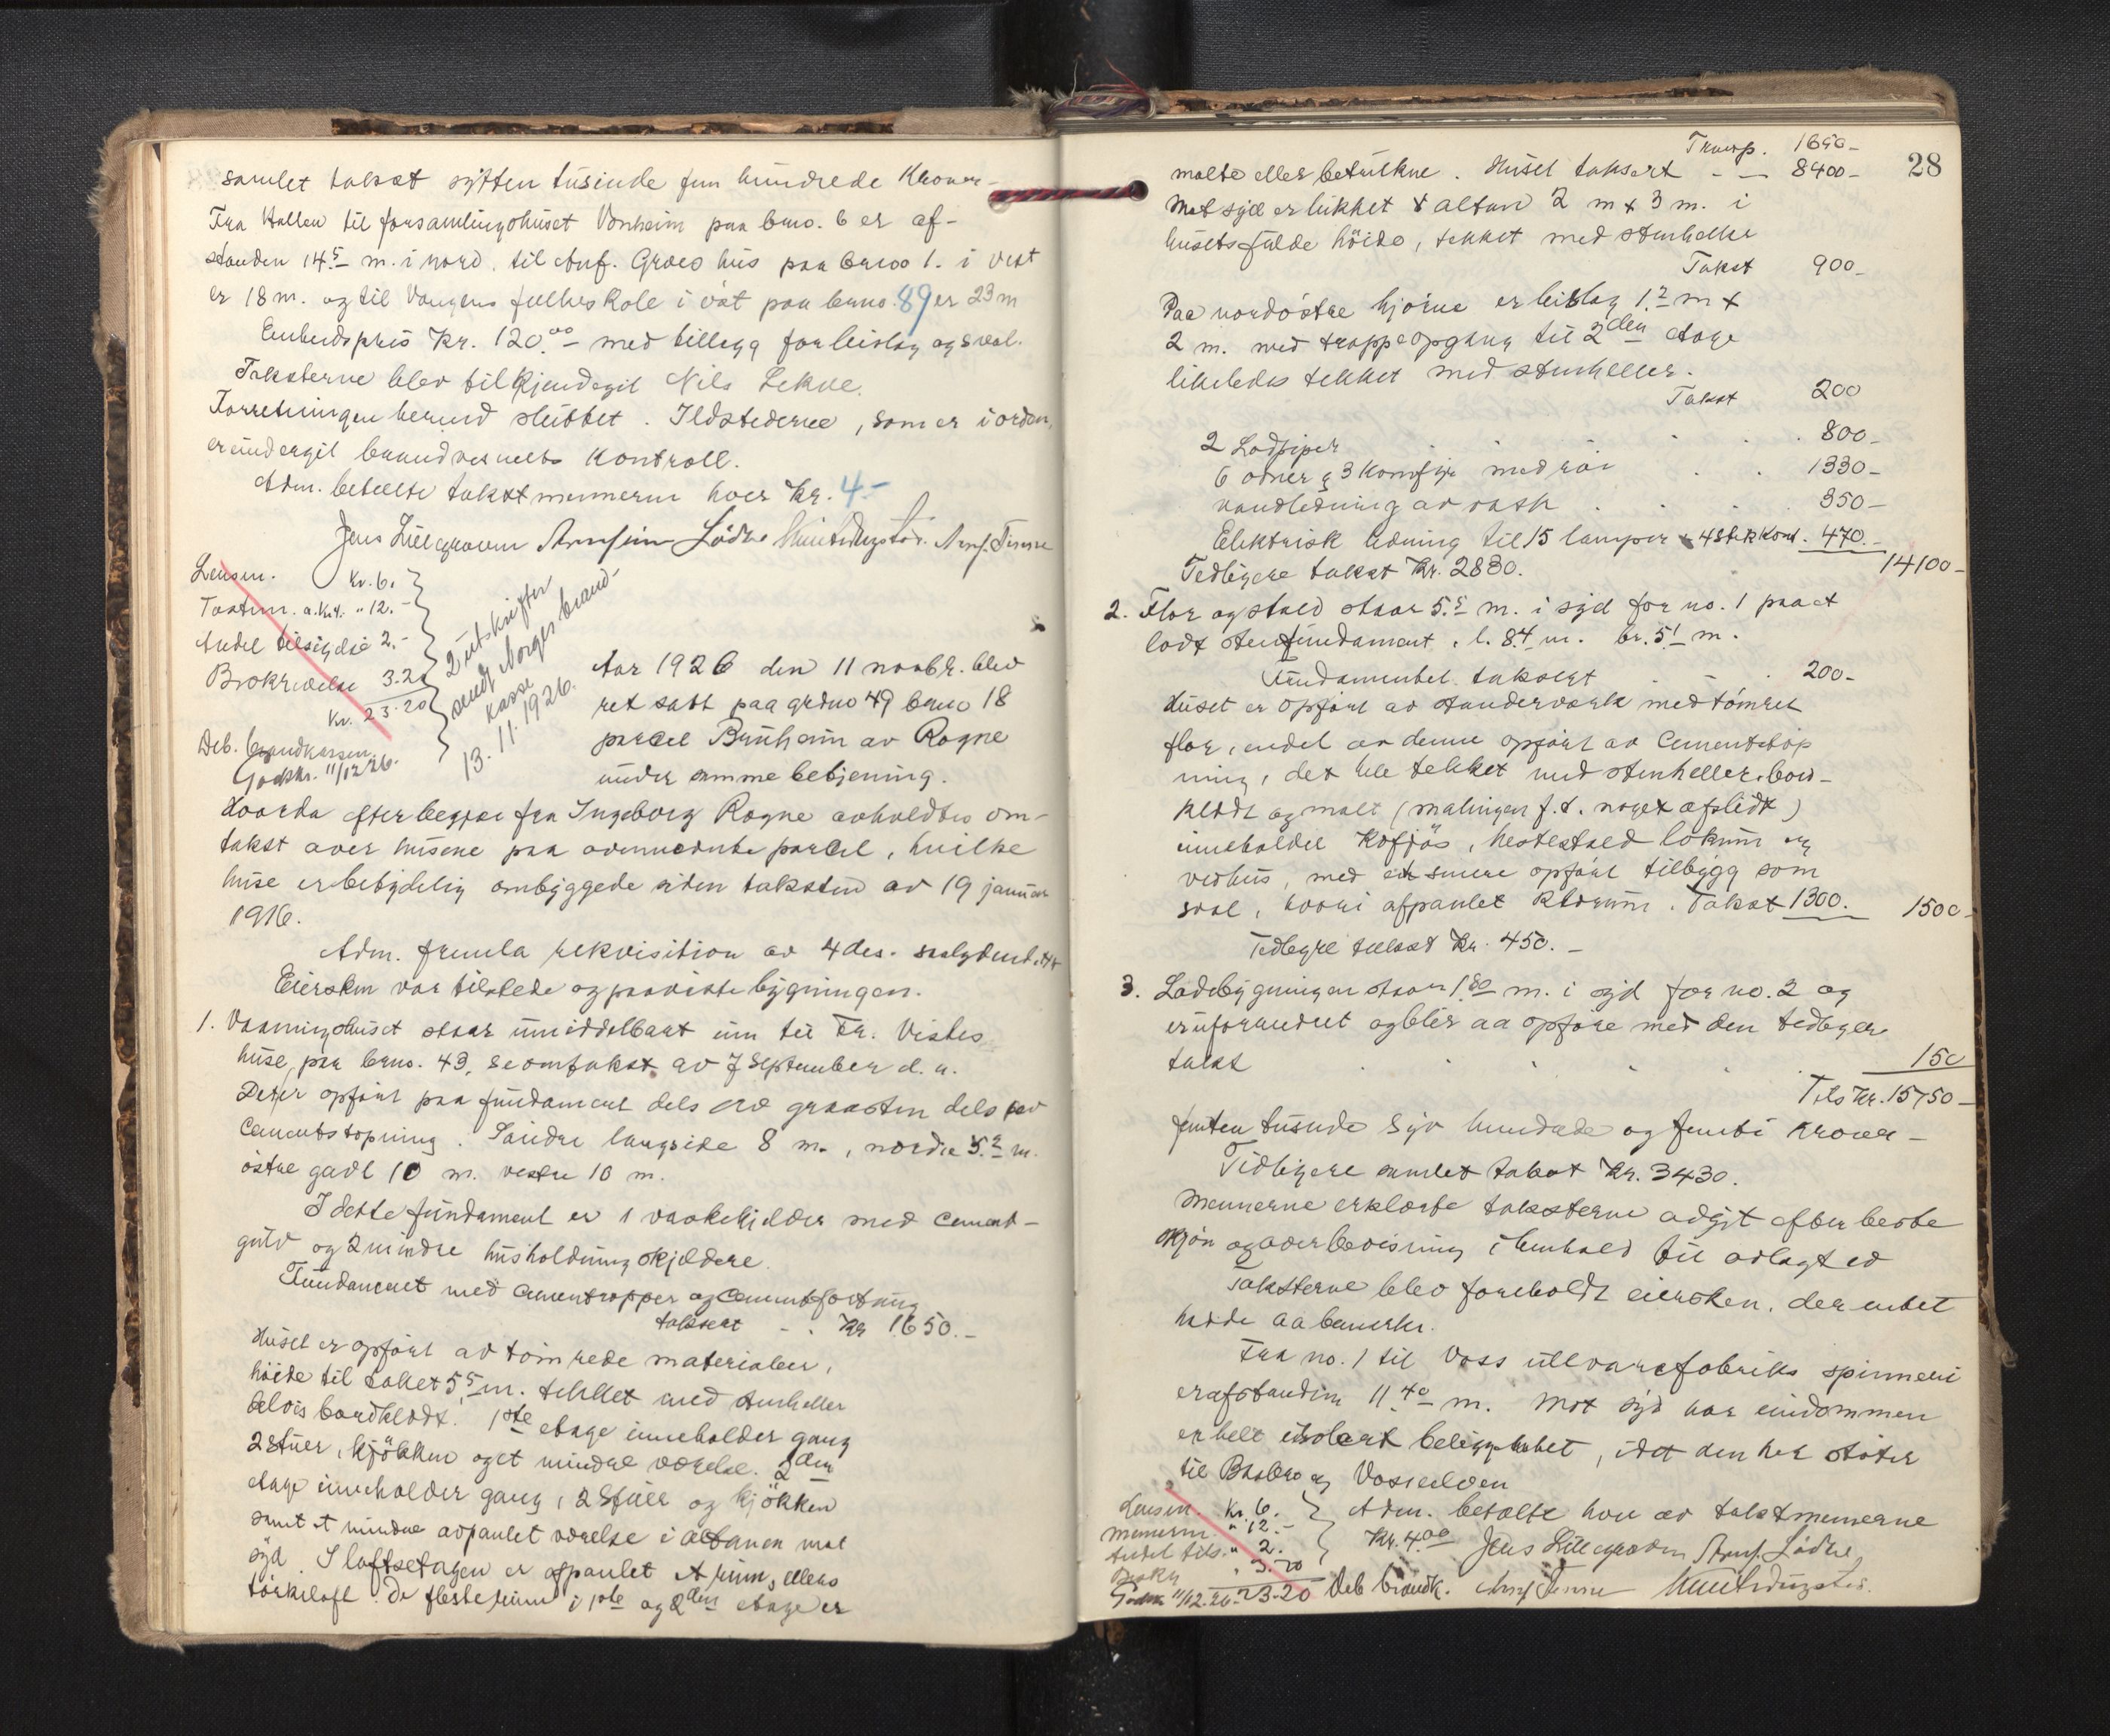 samlet takst sytten tusinde fem hundrede Kroner –
Fra Hallen til forsamlingshuset Vonheim paa bno. 6 er af-
standen 14.5 m. i nord. til Anf. Graves hus paa bno 1. i vest
er 18 m. og til Vangens folkeskole i øst paa bno. 89 er 23 m
Enhedspris Kr. 120.00 – med tillegg for bislag og sval.
Taksterne blev tilkjendegit Nils Lekve.
Forretningen hermed sluttet. Ildstederne, som er i orden,
er undergit brandvesnets kontroll.
Adm. betalte takstmennerne hver Kr. 4.–
Jens Lillegraven Arnfinn Lødve Arnf. Tesene
Lensm. Kr. 6.
Takstm. a Kr 4. " 12.–
Andel tilsigelse 2.–
Brokrivelse 3.20
Kr. 23.20
Deb. brandkassen
Godskr. 11/12 26.
2 utskrifter
sendt Norges brand-
kasse
13.11.1926.
Aar 1926 den 11 novbr. blev
ret satt paa grdno 49 bno 18
parcel Brunheim av Rogne
under samme betjening.
Hvorda efter begjær fra Ingeborg Rogne avholdtes om-
takst over husene paa ovennevnte parcel, hvilke
huse er betydelig ombyggede siden taksten av 19 januar
1916.
Adm. fremla rekvisition av 4 des. saalydende
Eiersken var tilstede og paaviste bygningen.
1. Vaaningshuset staar umiddelbart inn til Fr. Vistes
huse, paa bno. 43, se omtakst av 7 september d. a.
Det er opført paa fundament dels av graasten dels av
Cementstøpning. Søndre langside 8 m., nordre 5.2 m.
østre gavl 10 m. vestre 10 m.
I dette fundament er 1 vaskekjelder med cement-
gulv og 2 mindre husholdningskjeldere.
Fundamentet med cementtrapper og Cementfortaug
taksert - . Kr 1650.–
Huset er opført av tømrede materialer,
høide til taket 5.5 m. tekket med stenheller
delvis bordkledt. 1ste etage inneholder gang
2 stuer, kjøkken og et mindre værelse. 2den
etage inneholder gang, 2 stuer og kjøkken
samt et mindre avpanlet værelse i altanen mot
syd. I loftsetagen er afpanlet et rum, ellers
tørkeloft. De fleste rum i 1ste og 2den etage er
28
Transp. 1650–
malte eller betrukne. Huset taksert - — 8400–
Mot syd er bikket & altan 2 m x 3 m. i
husets fulde høide, tekket med stenheller
Takst 900–
Paa nordøstre hjørne er bislag 1.2 m x
2 m. med trappeopgang til 2den etage
likeledes tekket med stenheller.
Takst 200
2 Ladpiper . . . 800–
6 ovner & 3 komfyr med rør . . 1330–
vandledning av vask . . . 350–
Elektrisk ledning til 15 lamper & 4 stikkkont. 470.–
14100–
Tedligere takst Kr. 2830.
2. Flor og stald staar 5.5 m. i syd for no. 1 paa et
lødt stenfundament, l. 8.4 m. br. 5.1 m.
Fundamentet taksert . . 200–
Huset er opført av standerverk med tømret
flor, endel av denne opført av Cementstøp
ning, det hele tekket med stenheller, bord-
kledt og malt (malingen f.t. noget afslidt)
inneholder kofjøs, hestestald lokum og
vedhus, med et smere opført tilbygg som
sval, hvori afpanlet klosum. Takst 1300. 1500–
Tedligre takst Kr. 450.–
3. Ladebygningen staar 1.80 m. i syd for no. 2 og
er uforandret og blir aa opføre med den tedligere
takst . . . . . 150
Tils Kr. 15750–
femten tusende syv hundrede og femti kroner –
Tidligere samlet takst Kr. 3430.
Mennerne erklærte taksterne avgit efter beste
skjøn og overbevisning i henhold til avlagt ed
Taksterne blev foreholdt eiersken, der intet
hadde aa bemerke.
Fra no. 1 til Voss ullvarefabriks spinneri
er afstanden 11.40 m. Mot syd har eindommen
en helt isolert beliggenhet, idet den her støter
til Bksbro og Vosseelven
Lensm. Kr. 6.
Mennerne " 12.–
Andel tils. " 2.
Brokr " 3.20
Godskr 11/12.26. 23.20 Deb brandk.
Adm. betalte hver av takstmennerne
Kr. 4.00 Jens Lillegraven Arnf. Lødve
Arnf Tesene